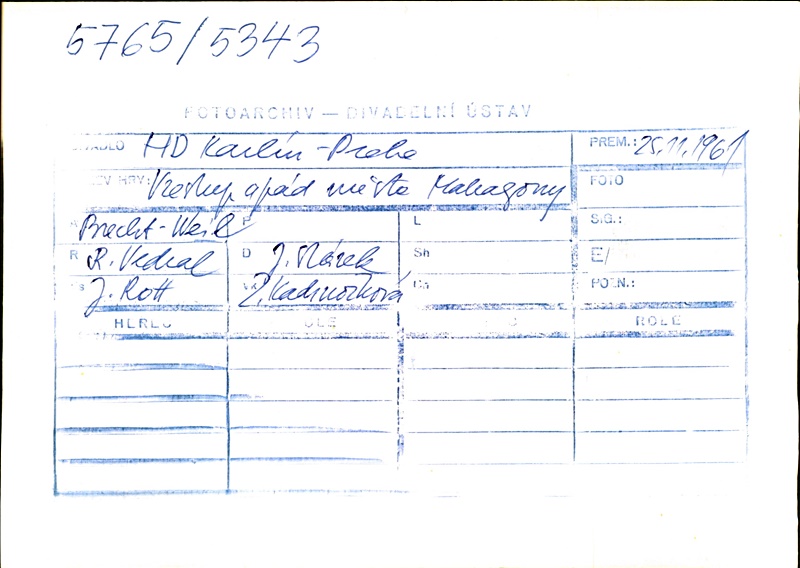 5765/5343
FOTOARCHIV — DIVADELNÍ ÚSTAV
DIVADLO HD Karlín - Praha PREM.: 25.11.1961
NÁZEV HRY: Vzestup a pád města Mahagony FOTO
Brecht - Weill P L SIG.:
R R. Vedral D J. Marek Sh E/
J. Rott Z. Kadrnožková Ch POZN.:
HEREC ROLE ROLE